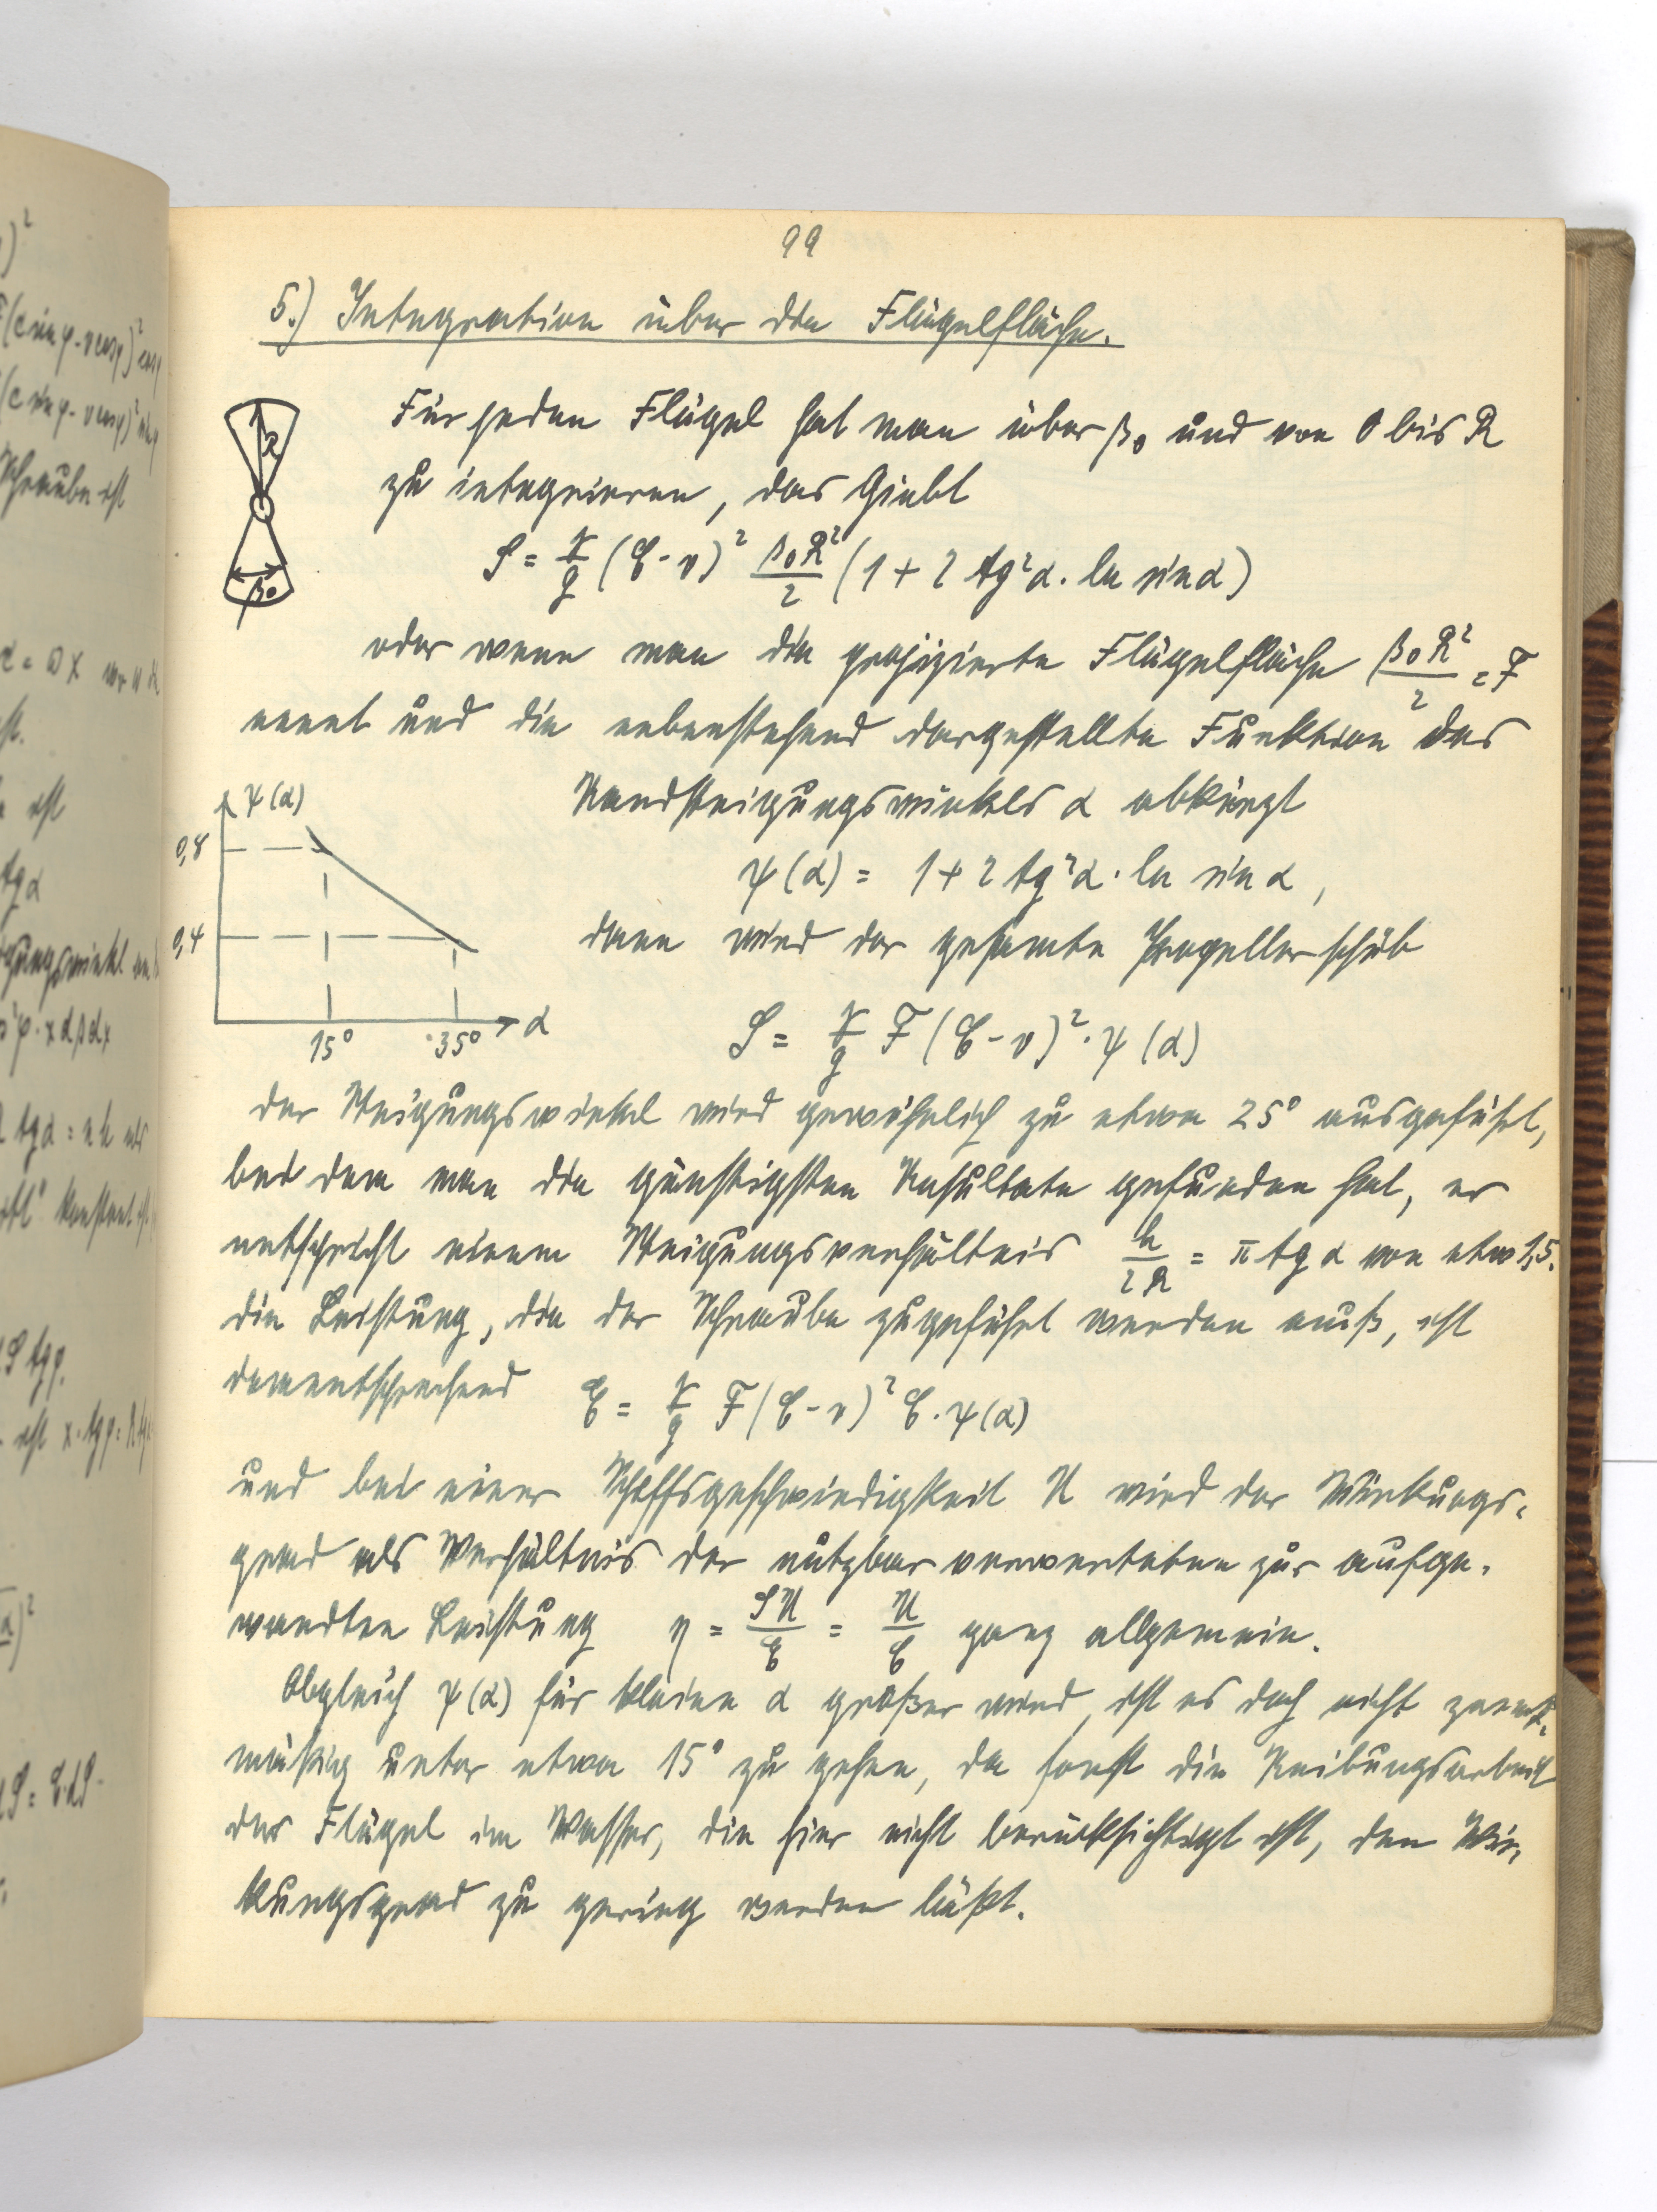 99
5.) Integration über die Flügelfläche.
Für jeden Flügel hat man über β₀ und von 0 bis R
zu integrieren, das Giebt
S = γ/g (C - v)² β₀R²/2 (1 + 2 tg²α . ln sin α)
oder wenn man die projizierte Flügelfläche β₀R²/2 = F
nennt und die nebenstehend dargestellte Funktion des
Randsteigungswinkels α abkürzt
ψ(α) = 1 + 2 tg²α . ln sin α ,
dann wird der gesamte Propellerschub
S = γ/g F (C - v)² . ψ(α)
der Steigungswinkel wird gewöhnlich zu etwa 25° ausgeführt,
bei dem man die günstigsten Resultate gefunden hat, er
entspricht einem Steigungsverhältnis h/2R = π tg α von etwa 1,5.
die Leistung, die der Schraube zugeführt werden muß, ist
dementsprechend E = γ/g F (C - v)² C . ψ(α)
und bei einer Schiffsgeschwindigkeit U wird der Wirkungs-
grad als Verhältnis der nutzbar verwerteten zur aufge-
wandten Leistung η = SU/E = U/C ganz allgemein.
Obgleich ψ(α) für kleine α größer wird, ist es doch nicht zweck-
mäßig unter etwa 15° zu gehen, da sonst die Reibungsarbeit
der Flügel im Wasser, die hier nicht berücksichtigt ist, den Wir-
kungsgrad zu gering werden läßt.
R
β₀
ψ(α)
0,8
0,4
15° 35° α